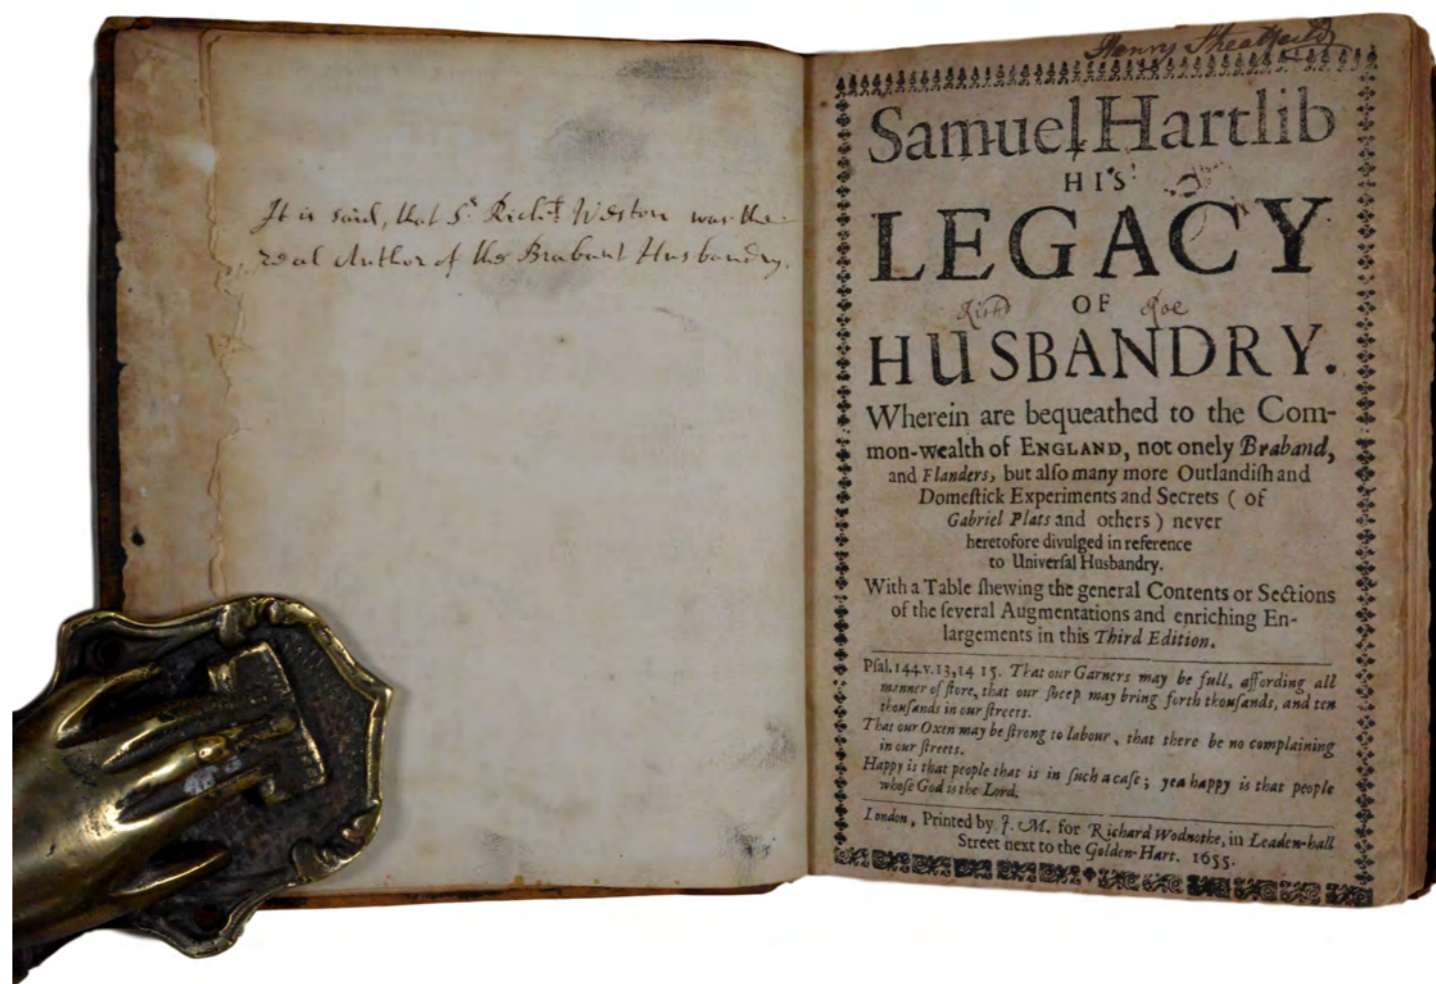 It is said, that Sr. Richd. Weston was the
real Author of the Brabant Husbandry.
Henry Streatfeild
Samuel Hartlib
HIS
LEGACY
OF
Richd Roe
HUSBANDRY.
Wherein are bequeathed to the Com-
mon-wealth of ENGLAND, not onely Braband,
and Flanders, but also many more Outlandiſh and
Domeſtick Experiments and Secrets ( of
Gabriel Plats and others ) never
heretofore divulged in reference
to Univerſal Husbandry.
With a Table ſhewing the general Contents or Sections
of the ſeveral Augmentations and enriching En-
largements in this Third Edition.
Pſal.144.v.13,14 15. That our Garners may be full, affording all
manner of ſtore, that our ſheep may bring forth thouſands, and ten
thouſands in our ſtreets.
That our Oxen may be ſtrong to labour, that there be no complaining
in our ſtreets.
Happy is that people that is in ſuch a caſe; yea happy is that people
whoſe God is the Lord.
London, Printed by J. M. for Richard Wodnothe, in Leaden-hall
Street next to the Golden-Hart. 1655.